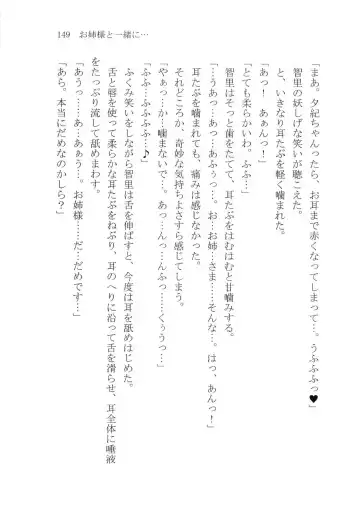 149 お姉様と一緒に…
「まあ。夕紀ちゃんったら、お耳まで赤くなってしまって…。うふふふっ♥」
智里の妖しげな笑いが聴こえた。
と、いきなり耳たぶを軽く噛まれた。
「あっ！　あぁんっ！」
「とても柔らかいわ。ふふ…」
智里はそっと歯をたてて、耳たぶをはむはむと甘噛みする。
「…あうっ…あっ…あふぅっ…。お…お姉…さま……そんな…。はっ、あんっ！」
耳たぶを噛まれても、痛みは感じなかった。
それどころか、奇妙な気持ちよさすら感じてしまう。
「やぁっ…か…噛まないで…。あっ…んっ…んふっ……くぅうっ…」
「ふふ…ふふふふ…♪」
ふくみ笑いをしながら智里は舌を伸ばすと、今度は耳を舐めはじめた。
舌と唇を使って柔らかな耳たぶをねぶり、耳のへりに沿って舌を滑らせ、耳全体に唾液
をたっぷり流して舐めまわす。
「あぅ…あ…あぁぅ…。お姉様……だ…だめです…」
「あら。本当にだめなのかしら？」